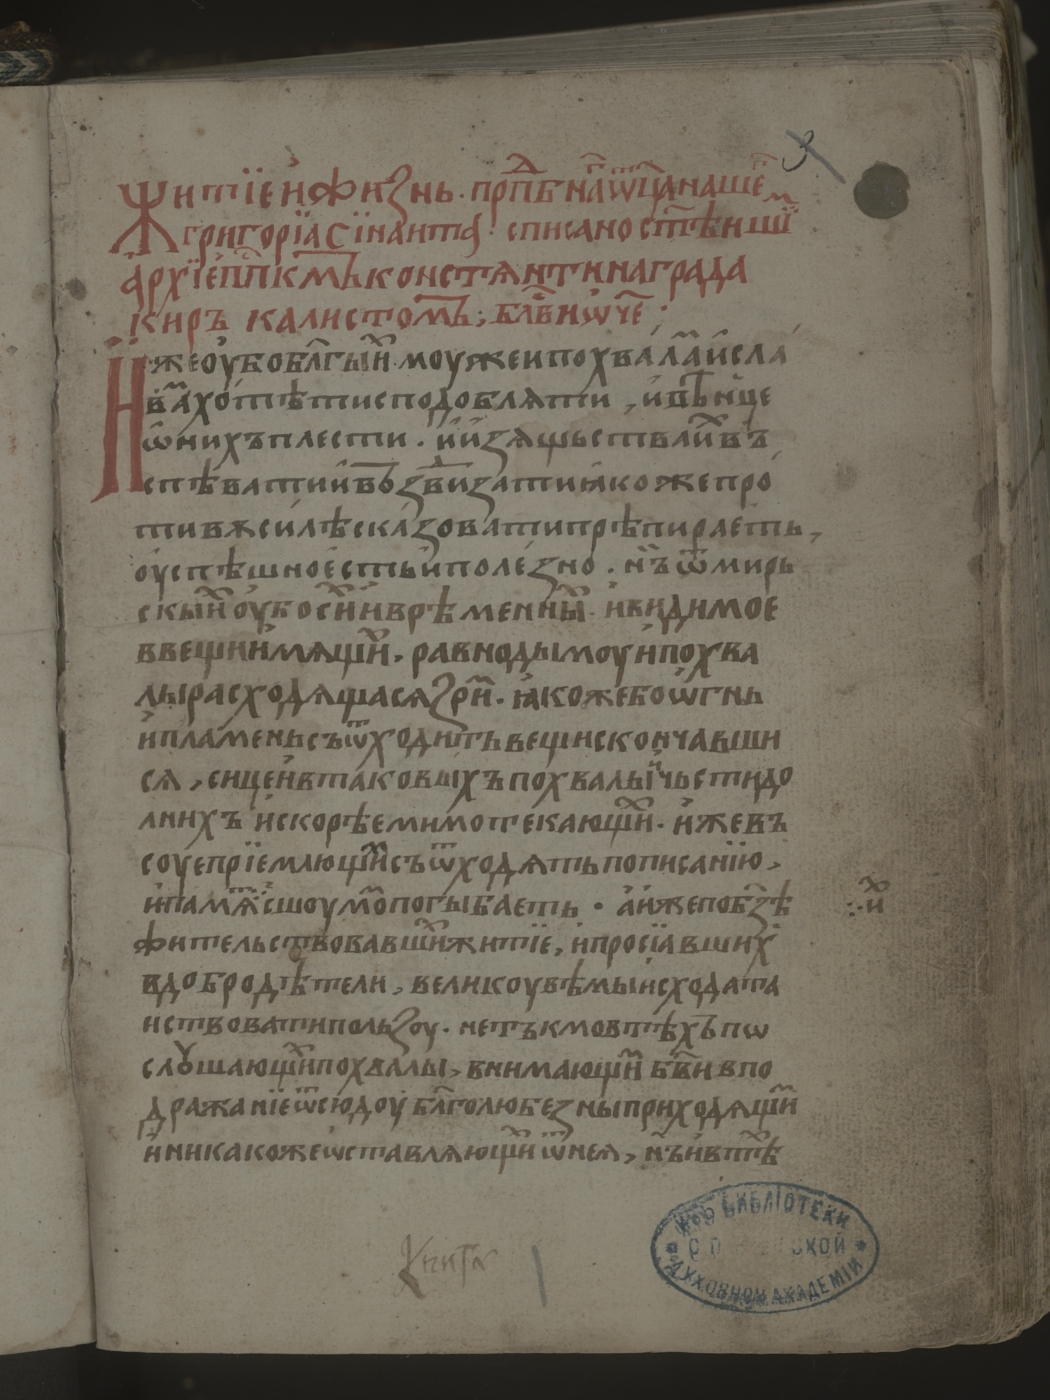 З
Житїе и жизнь. прпⷣбнаⷢ ѡⷮца нашеⷢ҇
григорїа сїнаита. списано ст҃ѣишиⷨ
архїепⷭ҇пкⷪмъ констянтина града
киръ калистомъ; блⷭ҇ви ѿч҃е
Иже оубо бл҃гыиⷯ моуже и похвалаⷨ и сла
ваⷨ хотѣти сподобляти, и вѣнце
ѿ нихъ плести. и изящьства иⷯ въ
спѣвати и воздвизати якоже про
тивѫ силѣ сказовати прѣпираеть,
оуспѣшно есть и полезно. нъ ѿ мирь
скыиⷯ оубо сиⷯ и врѣменныⷯ. и видимое
в вещи имящиⷯ. равно дымоу и похва
лы расходящася зриⷨ. якоже бо ѡгнь
и пламень съѿходить вещи скончавши
ся, сице и в таковыхъ похвалы и чьсти до
лнихъ и скорѣе мимотекающиⷯ. иже въ
соуе прїемлющиⷨ съѿходять по писанїю,
и память сⸯ шоумоⷨ погыбаеть. а иже по бз҃ѣ
жительствовавшиⷯ житїе, и просїавшиⷯ
в добродѣтели, великоу вѣмы исходата
иствовати ползоу. не тъкмо в тѣхъ по
слꙋшающиⷯ похвалы, внимающиⷨ бж҃їи в по
дражанїе ѿсюдоу бл҃голюбезны приходящиⷨ
и никакоже ѡставляющиⷯ ѿ нея, нъ и в тѣⷯ
:·иⷯ
Книга
ИЗЪ БИБЛІОТЕКИ
ДУХОВНОЙ АКАДЕМІИ